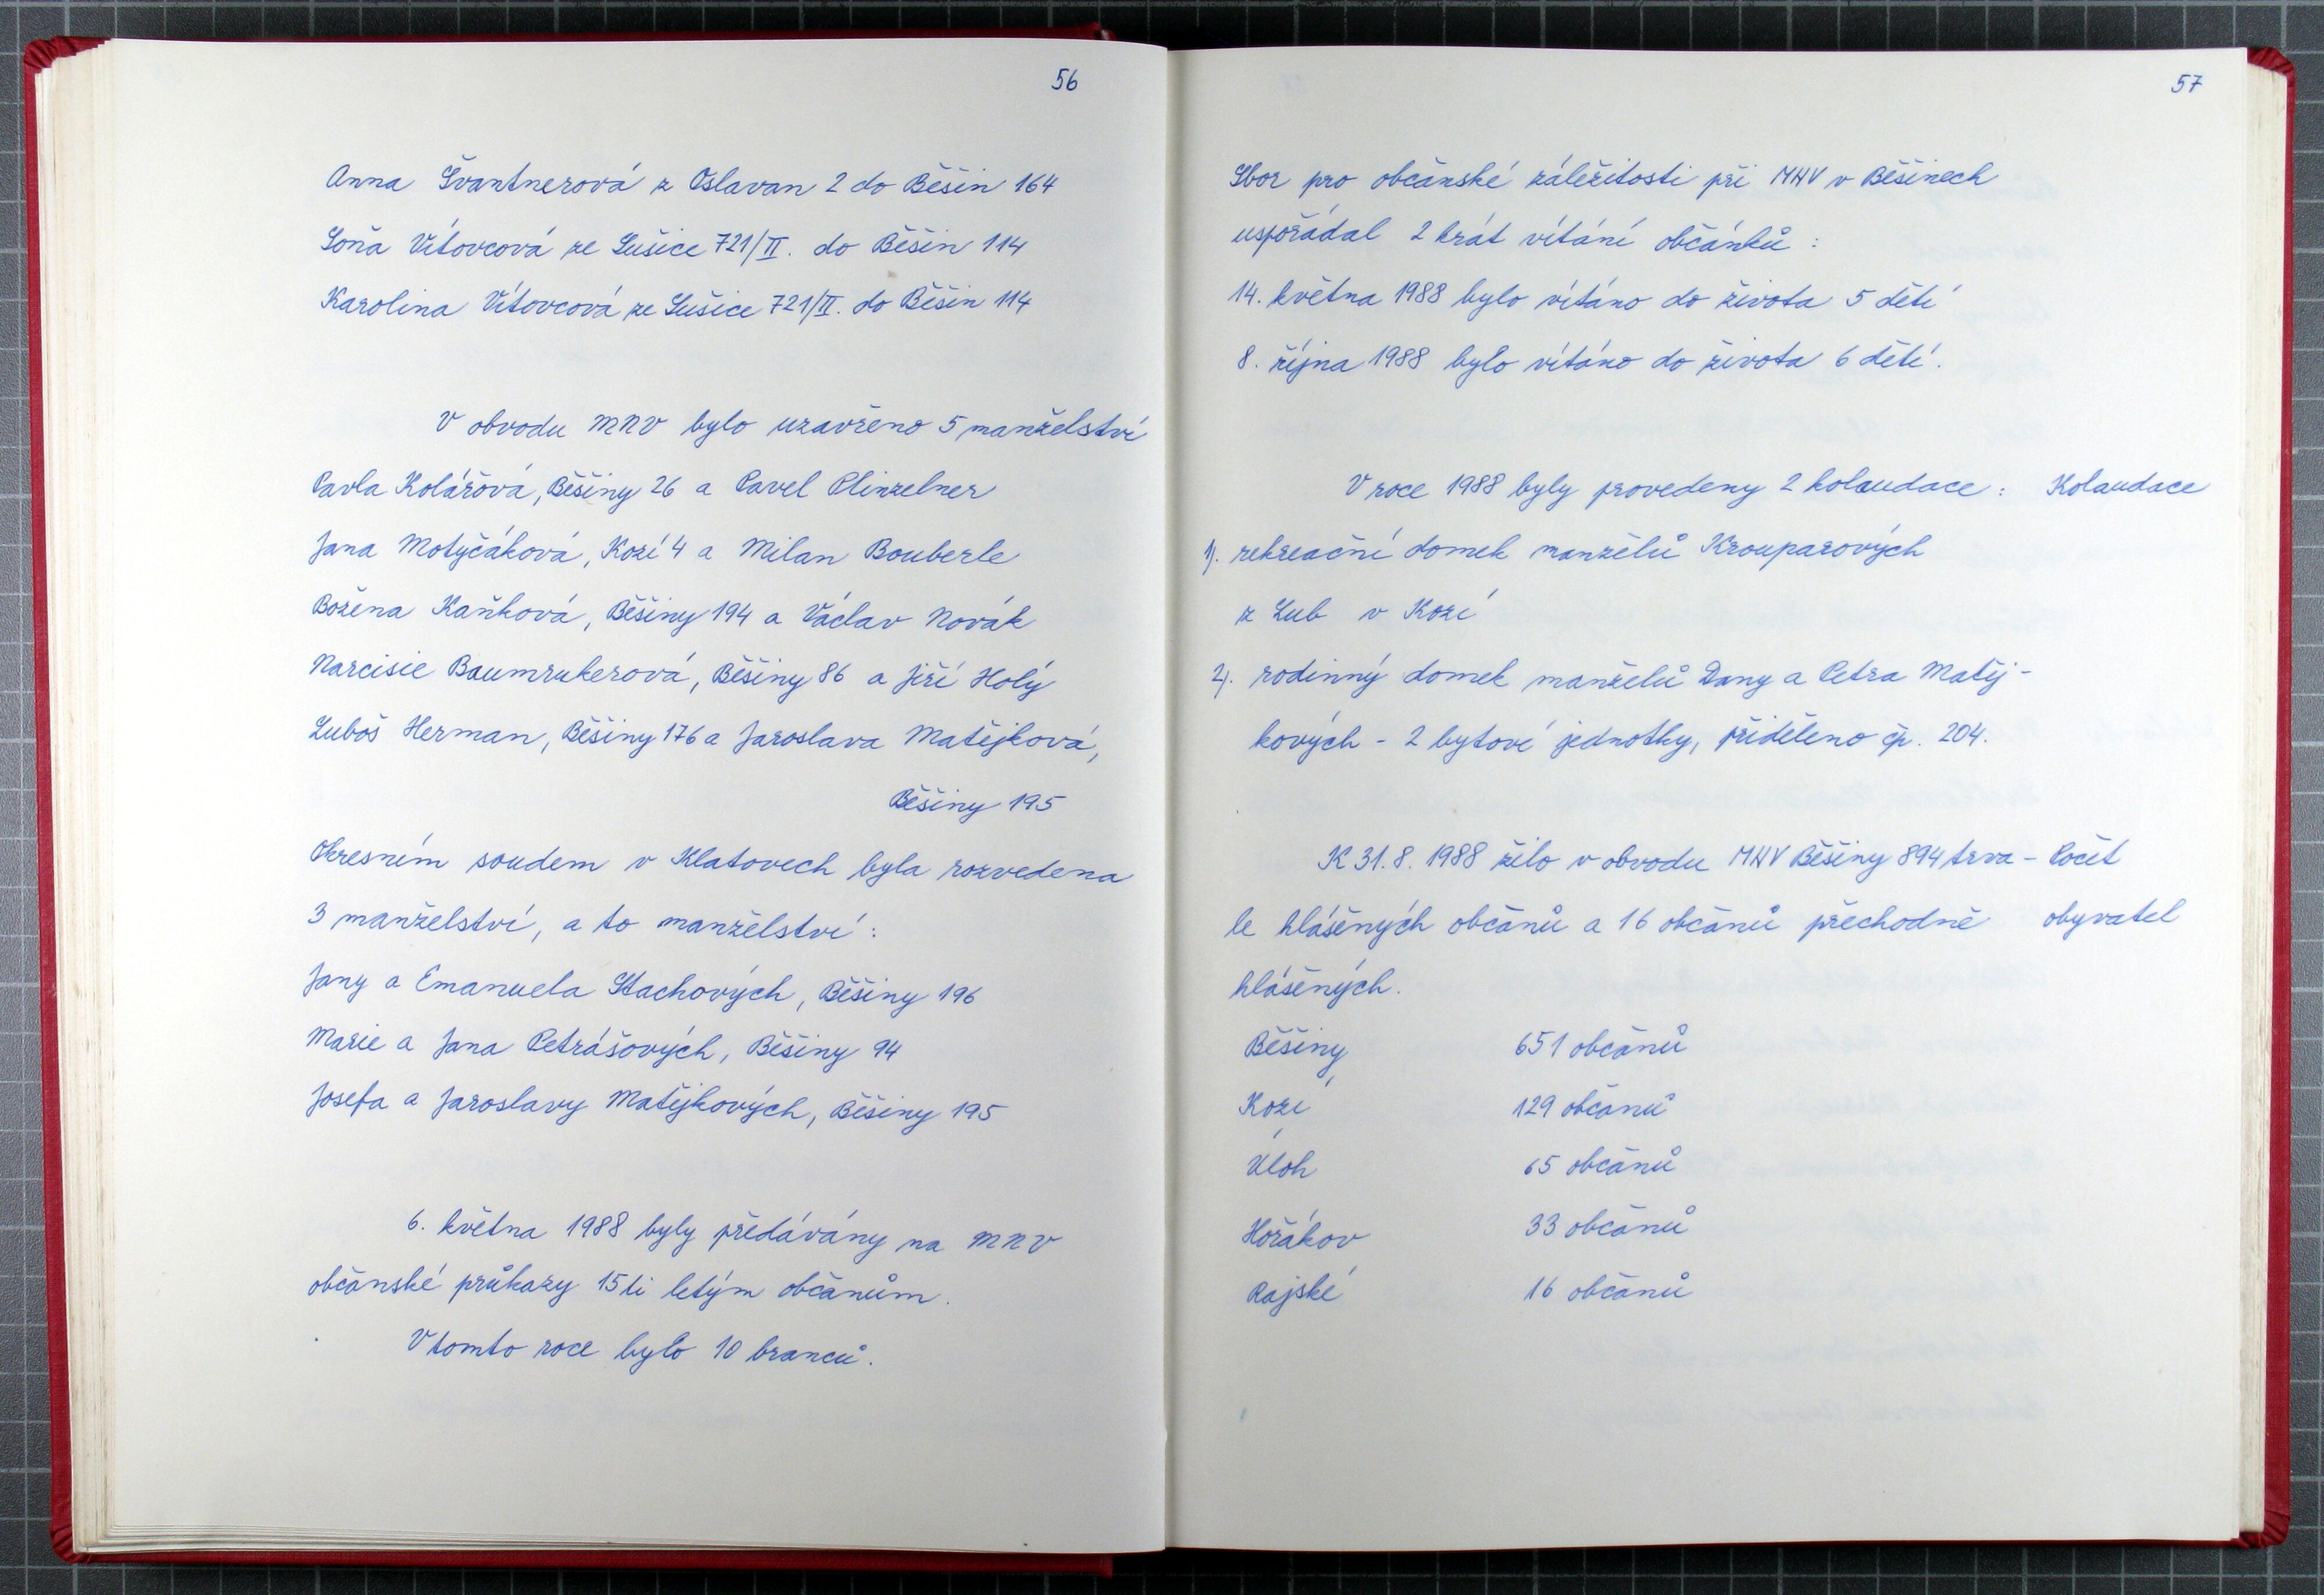 56
Anna Švantnerová z Oslavan 2 do Běšin 164
Soňa Vítovcová ze Sušice 721/II. do Běšin 114
Karolina Vítovcová ze Sušice 721/II. do Běšin 114
V obvodu MNV bylo uzavřeno 5 manželství
Pavla Kolářová, Běšiny 26 a Pavel Plinzelner
Jana Motyčáková, Kozí 4 a Milan Bouberle
Božena Kaňková, Běšiny 194 a Václav Novák
Narcisie Baumrukerová, Běšiny 86 a Jiří Holý
Luboš Herman, Běšiny 176 a Jaroslava Matějková,
Běšiny 195
Okresním soudem v Klatovech byla rozvedena
3 manželství, a to manželství:
Jany a Emanuela Stachových, Běšiny 196
Marie a Jana Petrášových, Běšiny 94
Josefa a Jaroslavy Matějkových, Běšiny 195
6. května 1988 byly předávány na MNV
občanské průkazy 15ti letým občanům.
V tomto roce bylo 10 branců.
57
Sbor pro občanské záležitosti při MNV v Běšinech
uspořádal 2 krát vítání občánků:
14. května 1988 bylo vítáno do života 5 dětí
8. října 1988 bylo vítáno do života 6 dětí.
V roce 1988 byly provedeny 2 kolaudace: Kolaudace
1). rekreační domek manželů Krouparových
z Lub v Kozí
2). rodinný domek manželů Dany a Petra Matěj-
kových - 2 bytové jednotky, přiděleno čp. 204.
K 31. 8. 1988 žilo v obvodu MNV Běšiny 894 trva- Počet
le hlášených občanů a 16 občanů přechodně obyvatel
hlášených.
Běšiny 651 občanů
Kozí 129 občanů
Úloh 65 občanů
Hořákov 33 občanů
Rajské 16 občanů